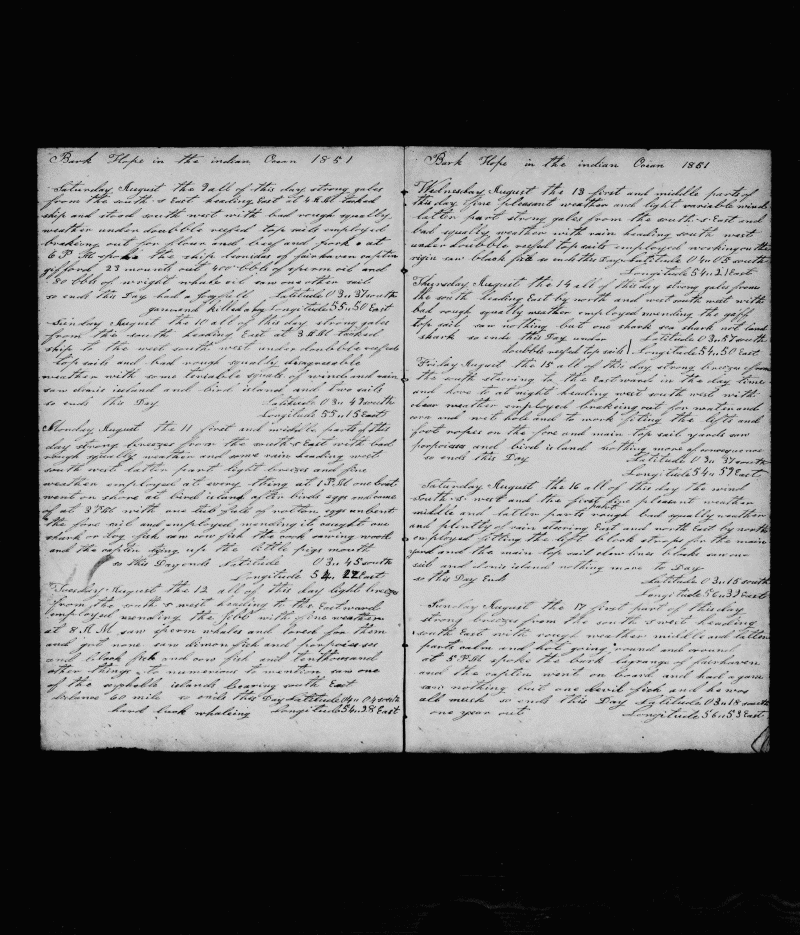 Bark Hope in the indian Ocian 1851
Saturday August the 9 all of this day strong gales
from the south & East heading East at 4 A M tacked
ship and stood south west with bad rough squally
weather under doubble reefed top sails employed
brakeing out for flour and beef and pork & at
6 P M spoke the ship leonidas of fairhaven captin
gifford 23 mounth out 400 bbls of sperm oil and
80 bbls of wright whale oil saw one other sail
so ends this Day had a Latitude 03 n 37 south
gam and killed a hog Longitude 55 n 50 East
Sunday August the 10 all of this day strong gales
from the south heading East at 3 A M tacked
ship to the west south west under doubble reefed
top sails and bad rough squally disagreeable
weather with some terrable squals of wind and rain
saw denis island and bird island and two sails
so ends this Day Latitude 03 n 49 south
Longitude 55 n 15 East
Monday August the 11 first and middle parts of this
day strong breezes from the south & East with bad
rough squally weather and some rain heading west
south west latter part light breezes and fine
weather employed at every thing at 1 P M one boat
went on shore at bird island after birds eggs and came
of at 3 P M with one tub full of rotten eggs unbent
the fore sail and employed mending it caught one
shark or dog fish saw cow fish the cook sawing wood
and the captin tying up the little pigs mouth
so this Day ends Latitude 03 n 45 south
Longitude 54 22 East
Tuesday August the 12 all of this day light breezes
from the south & west heading to the Eastward
employed mending the jibb with fine weather
at 8 A M saw sperm whales and lored for them
and got none saw dimon fish and porpoises
and black fish and cow fish and ten thousand
other things to numerious to mention saw one
of the islands bearing south East
distance 60 mile so ends this Day Latitude 04 n 04 south
hard luck whaleing Longitude 54 n 28 East
Bark Hope in the indian Ocian 1851
Wednesday August the 13 first and middle parts of
this day fine pleasant weather and light variable winds
latter part strong gales from the south & East and
bad squally weather with rain heading south west
under doubble reefed top sails employed working on the
rigin saw black fish so ends this Day Latitude 04 n 05 south
Longitude 54 n 21 East
Thursday August the 14 all of this day strong gales from
the south heading East by north and west south west with
bad rough squally weather employed mending the gaff
top sail saw nothing but one shark sea shark not land
shark so ends this Day under Latitude 03 n 57 south
doubble reefed top sails Longitude 54 n 50 East
Friday August the 15 all of this day strong breezes from
the south stearing to the Eastward in the day time
and hove to at night heading west south west with
clear weather employed brakeing out for water and
and wet hole and to work fiting the lifts and
foot ropes on the fore and main top sail yards saw
porpoises and bird island nothing more of consequence
so ends this Day Latitude 03 n 37 south
Longitude 54 n 59 East
Saturday August the 16 all of this day the wind
South & west and the first part fine pleasent weather
middle and latter parts rough bad squally weather
and plentty of rain stearing East and north East by north
employed fitting the left block straps for the main
yard and the main top sail clew lines blocks saw one
sail and denis island nothing more to Day
so this Day Ends Latitude 03 n 15 south
Longitude 56 n 32 East
Sunday August the 17 first part of this day
strong breezes from the south & west heading
south East with rough weather middle and latter
parts calm and hot going round and around
at 5 P M spoke the bark lagrange of fairhaven
and the captin went on board and had a gam
saw nothing but one devil fish and he was
all much so ends this Day Latitude 03 n 18 south
one year out Longitude 56 n 53 East